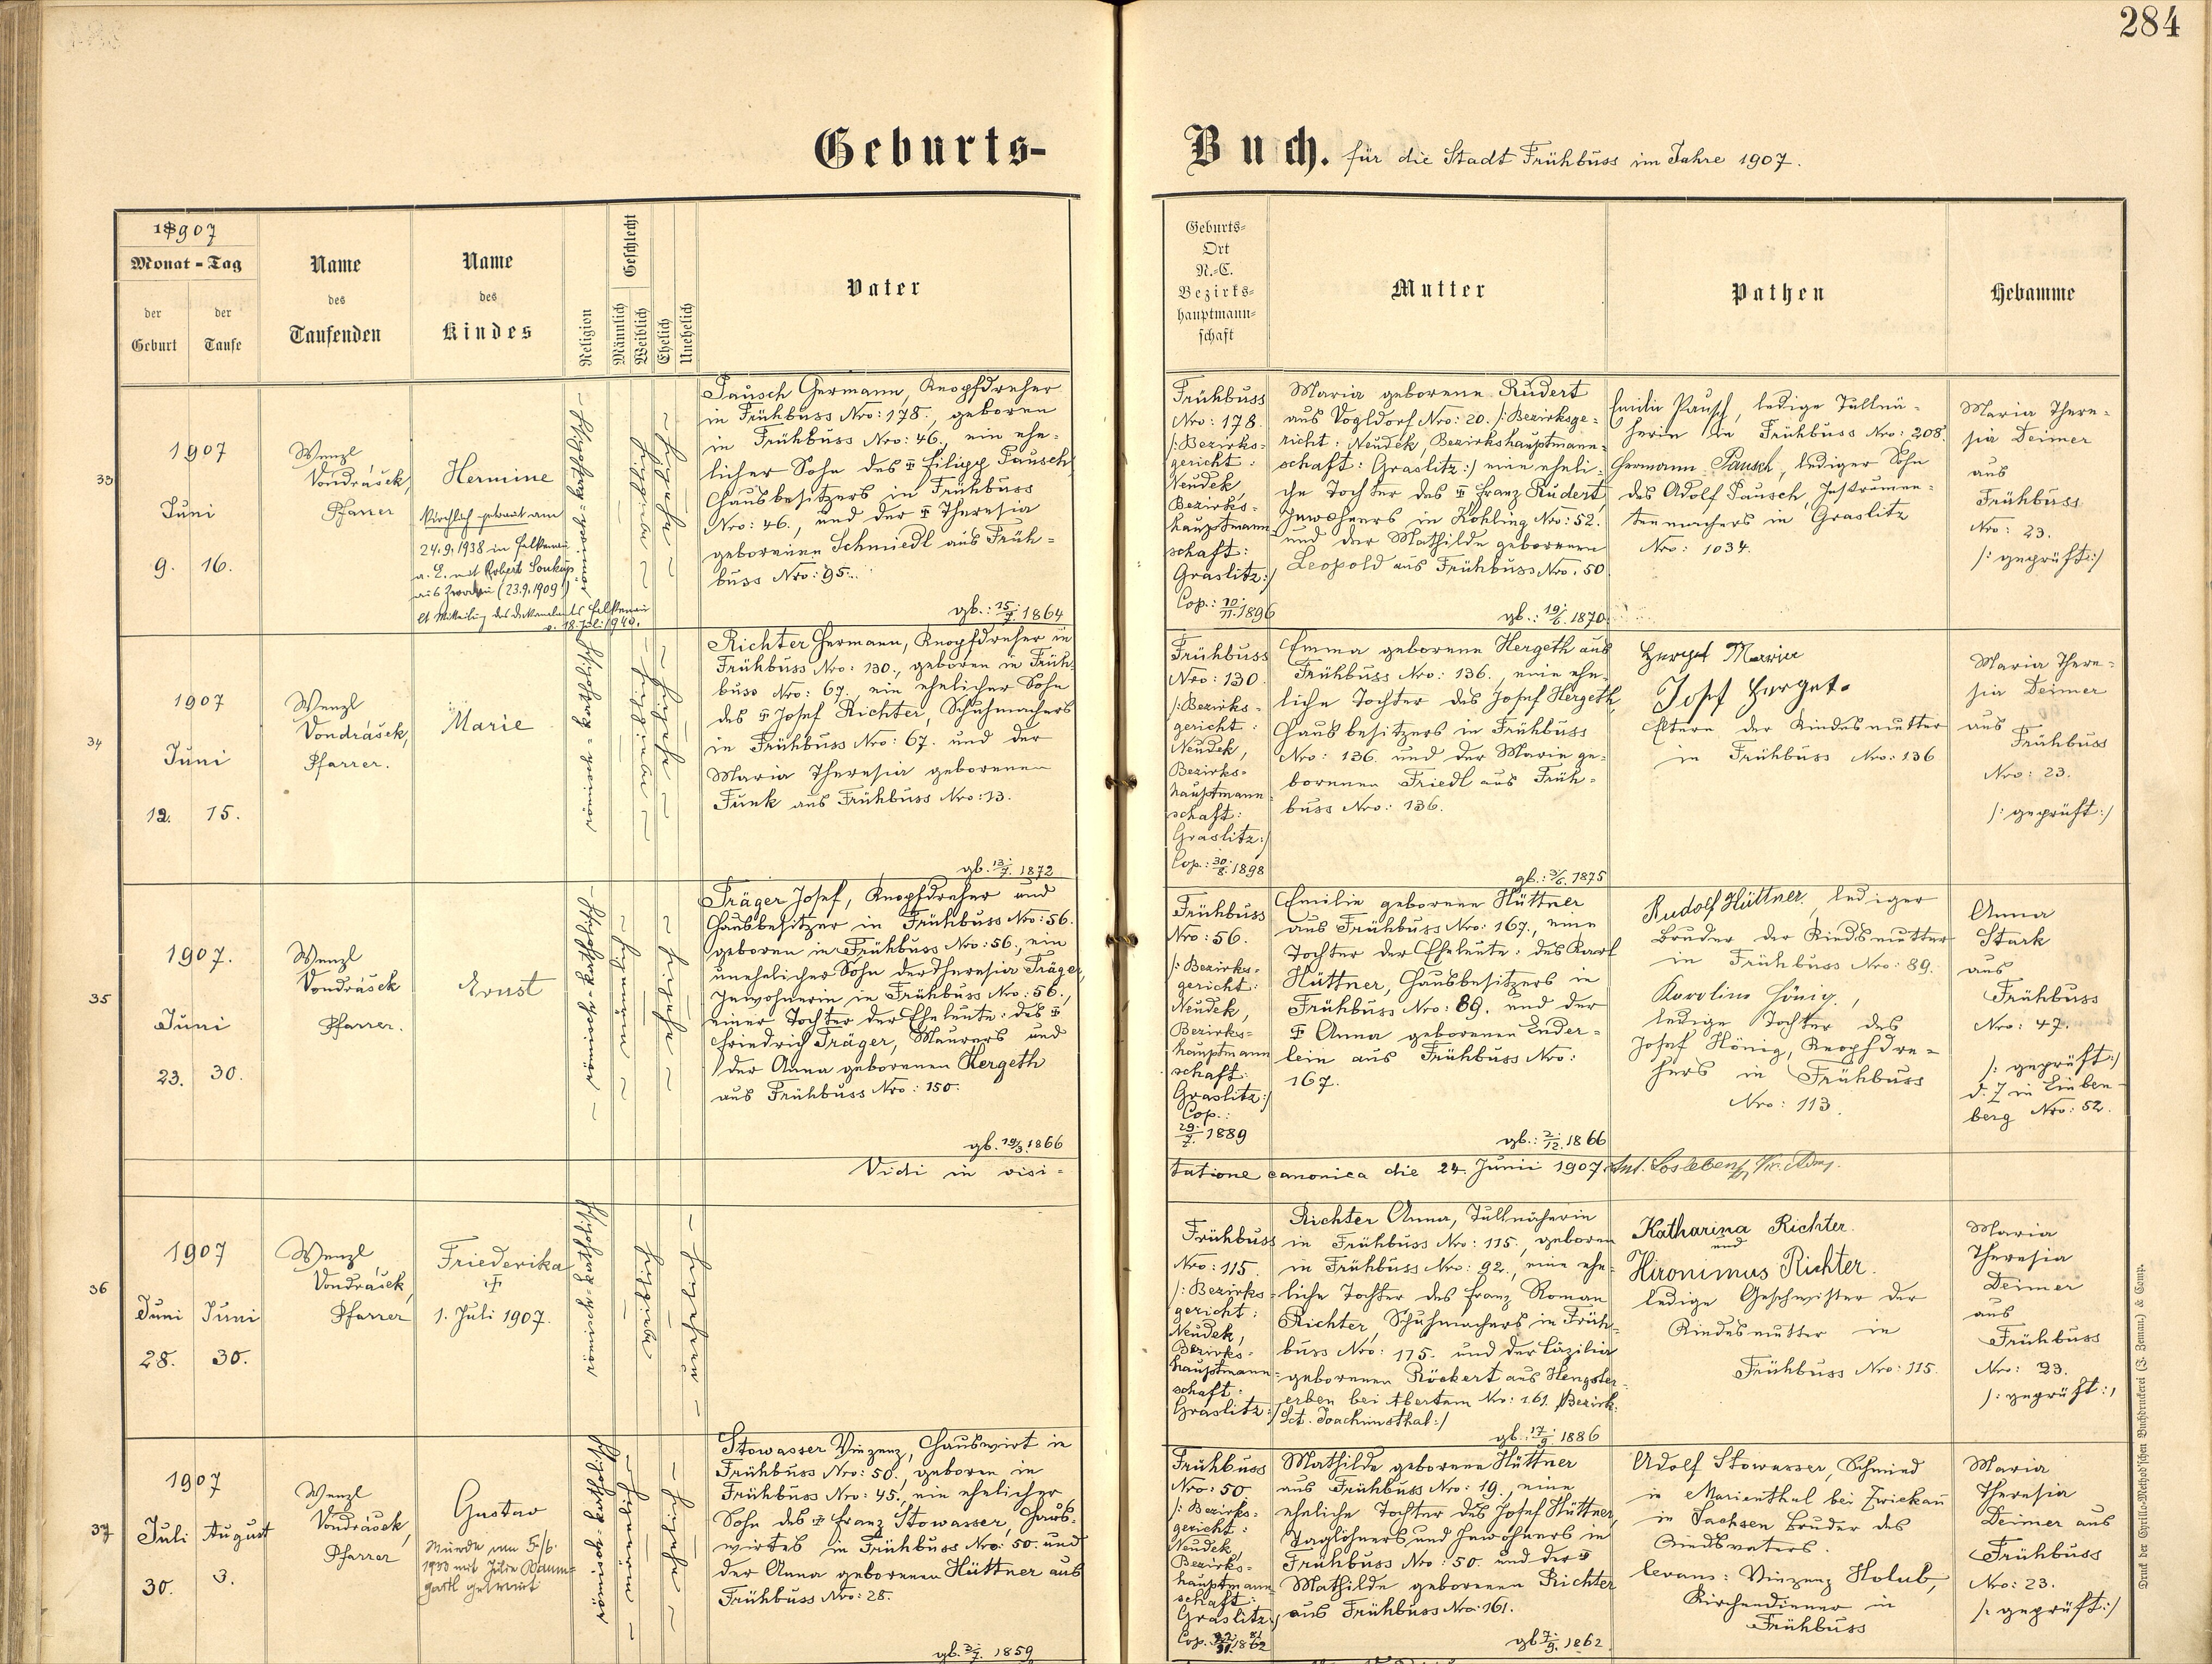 284
Geburts-
Buch. für die Stadt Frühbuss im Jahre 1907.
1907
Monat - Tag
der Geburt
der Taufe
Name des Taufenden
Name des Kindes
Religion
Geschlecht
Männlich
Weiblich
Ehelich
Unehelich
Vater
Geburts-
Ort
N.-C.
Bezirks-
hauptmann-
schaft
Mutter
Pathen
Hebamme
33
1907
Juni
9. 16.
Wenzl
Vondrášek,
Pfarrer
Hermine
Kirchlich getraut am
24.9.1938 in Falkenau
a. E. mit Robert Soukup
aus Zwodau (23.9.1909)
lt Mitteilung des Dekanalamts Falkenau
v. 18. Juli 1940.
römisch-katholisch
weiblich
ehelich
Pausch Hermann, Knopfdreher
in Frühbuss Nro: 178., geboren
in Frühbuss Nro: 46., ein ehe-
licher Sohn des ✝ Filipp Pausch
Hausbesitzers in Frühbuss
Nro: 46., und der ✝ Theresia
geborenen Schmiedl aus Früh-
buss Nro: 95.
gb.: 15/7. 1864
Frühbuss
Nro: 178.
/: Bezirks-
gericht:
Neudek,
Bezirks-
hauptmann-
schaft:
Graslitz:/
Cop.: 10/11. 1896
Maria geborene Rudert
aus Vogldorf Nro: 20. /: Bezirksge-
richt: Neudek, Bezirkshauptmann-
schaft: Graslitz:/ eine eheli-
che Tochter des ✝ Franz Rudert,
Inwohners in Kohling Nro: 52.
und der Mathilde geborenen
Leopold aus Frühbuss Nro: 50
gb.: 19/6. 1870
Emilie Pausch, ledige Tüllnä-
herin in Frühbuss Nro: 208.
Hermann Pausch, lediger Sohn
des Adolf Pausch, Instrumen-
tenmachers in Graslitz
Nro: 1034.
Maria There-
sia Deimer
aus
Frühbuss
Nro: 23.
/: geprüft:/
34
1907
Juni
12. 15.
Wenzl
Vondrášek,
Pfarrer.
Marie
römisch-katholisch
weiblich
ehelich
Richter Hermann, Knopfdreher in
Frühbuss Nro: 130., geboren in Früh-
buss Nro: 67., ein ehelicher Sohn
des ✝ Josef Richter, Schuhmachers
in Frühbuss Nro: 67. und der
Maria Theresia geborenen
Funk aus Frühbuss Nro: 13.
gb. 13/7. 1872
Frühbuss
Nro: 130.
/: Bezirks-
gericht:
Neudek,
Bezirks-
hauptmann-
schaft:
Graslitz:/
Cop.: 30/8. 1898
Emma geborene Hergeth aus
Frühbuss Nro: 136., eine ehe-
liche Tochter des Josef Hergeth,
Hausbesitzers in Frühbuss
Nro: 136. und der Marie ge-
borenen Friedl aus Früh-
buss Nro: 136.
gb.: 3/6. 1875
Herget Maria
Josef Herget.
Eltern der Kindesmutter
in Frühbuss Nro: 136
Maria There-
sia Deimer
aus
Frühbuss
Nro: 23.
/: geprüft:/
35
1907.
Juni
23. 30.
Wenzl
Vondrášek
Pfarrer.
Ernst
römisch-katholisch
männlich
ehelich
Träger Josef, Knopfdreher und
Hausbesitzer in Frühbuss Nro: 56.
geboren in Frühbuss Nro: 56., ein
unehelicher Sohn der Theresia Träger,
Inwohnerin in Frühbuss Nro: 56.,
einer Tochter der Eheleute: des ✝
Friedrich Träger, Maurers und
der Anna geborenen Hergeth
aus Frühbuss Nro: 150.
gb. 19/3. 1866
Frühbuss
Nro: 56.
/: Bezirks-
gericht:
Neudek,
Bezirks-
hauptmann-
schaft:
Graslitz:/
Cop.:
29/7. 1889
Emilie geborene Hüttner
aus Frühbuss Nro: 167., eine
Tochter der Eheleute: des Karl
Hüttner, Hausbesitzers in
Frühbuss Nro: 89. und der
✝ Anna geborenen Ender-
lein aus Frühbuss Nro:
167.
gb.: 2/12. 1866
Rudolf Hüttner, lediger
Bruder der Kindsmutter
in Frühbuss Nro: 89.
Karoline Hönig,
ledige Tochter des
Josef Hönig, Knopfdre-
hers in Frühbuss
Nro: 113.
Anna
Stark
aus
Frühbuss
Nro: 47.
/: geprüft:/
d. Z in Lieben-
berg Nro: 52.
Vidi in visi-
tatione canonica die 24. Junii 1907. Ant. Losleben
36
1907
Juni Juni
28. 30.
Wenzl
Vondrášek,
Pfarrer
Friederika
✝
1. Juli 1907.
römisch-katholisch
weiblich
unehelich
Frühbuss
Nro: 115.
/: Bezirks-
gericht:
Neudek,
Bezirks-
hauptmann-
schaft:
Graslitz:/
Richter Anna, Tüllnäherin
in Frühbuss Nro: 115., geboren
in Frühbuss Nro: 92., eine ehe-
liche Tochter des Franz Roman
Richter, Schuhmachers in Früh-
buss Nro: 115. und der Cäzilia
geborenen Röckert aus Hengster-
erben bei Abertam Nro: 161. /Bezirk:
Sct. Joachimsthal:/
gb.: 17/9. 1886
Katharina Richter
und
Hironimus Richter.
ledige Geschwister der
Kindesmutter in
Frühbuss Nro: 115.
Maria
Theresia
Deimer
aus
Frühbuss
Nro: 23.
/: geprüft:/
37
1907
Juli August
30. 3.
Wenzl
Vondrášek,
Pfarrer
Gustav
Wurde am 5./6.
1933 mit Julie Baum-
gartl getraut
römisch-katholisch
männlich
ehelich
Stowasser Vinzenz, Hauswirt in
Frühbuss Nro: 50., geboren in
Frühbuss Nro: 45., ein ehelicher
Sohn des ✝ Franz Stowasser, Haus-
wirtes in Frühbuss Nro: 50. und
der Anna geborenen Hüttner aus
Frühbuss Nro: 28.
gb. 3/7. 1859
Frühbuss
Nro: 50
/: Bezirks-
gericht:
Neudek,
Bezirks-
hauptmann-
schaft:
Graslitz:/
Cop.
Mathilde geborene Hüttner
aus Frühbuss Nro: 19., eine
eheliche Tochter des Josef Hüttner,
Taglöhners und Inwohners in
Frühbuss Nro: 50. und der ✝
Mathilde geborenen Richter
aus Frühbuss Nro: 161.
gb. 7/9. 1862.
Adolf Stowasser, Schmied
in Marienthal bei Zwickau
in Sachsen Bruder des
Kindsvaters.
levans: Vinzenz Holub,
Kirchendiener in
Frühbuss
Maria
Theresia
Deimer aus
Frühbuss
Nro: 23.
/: geprüft:/
Druck der Cyrillo-Method'schen Buchdruckerei (J. Zeman) & Comp.